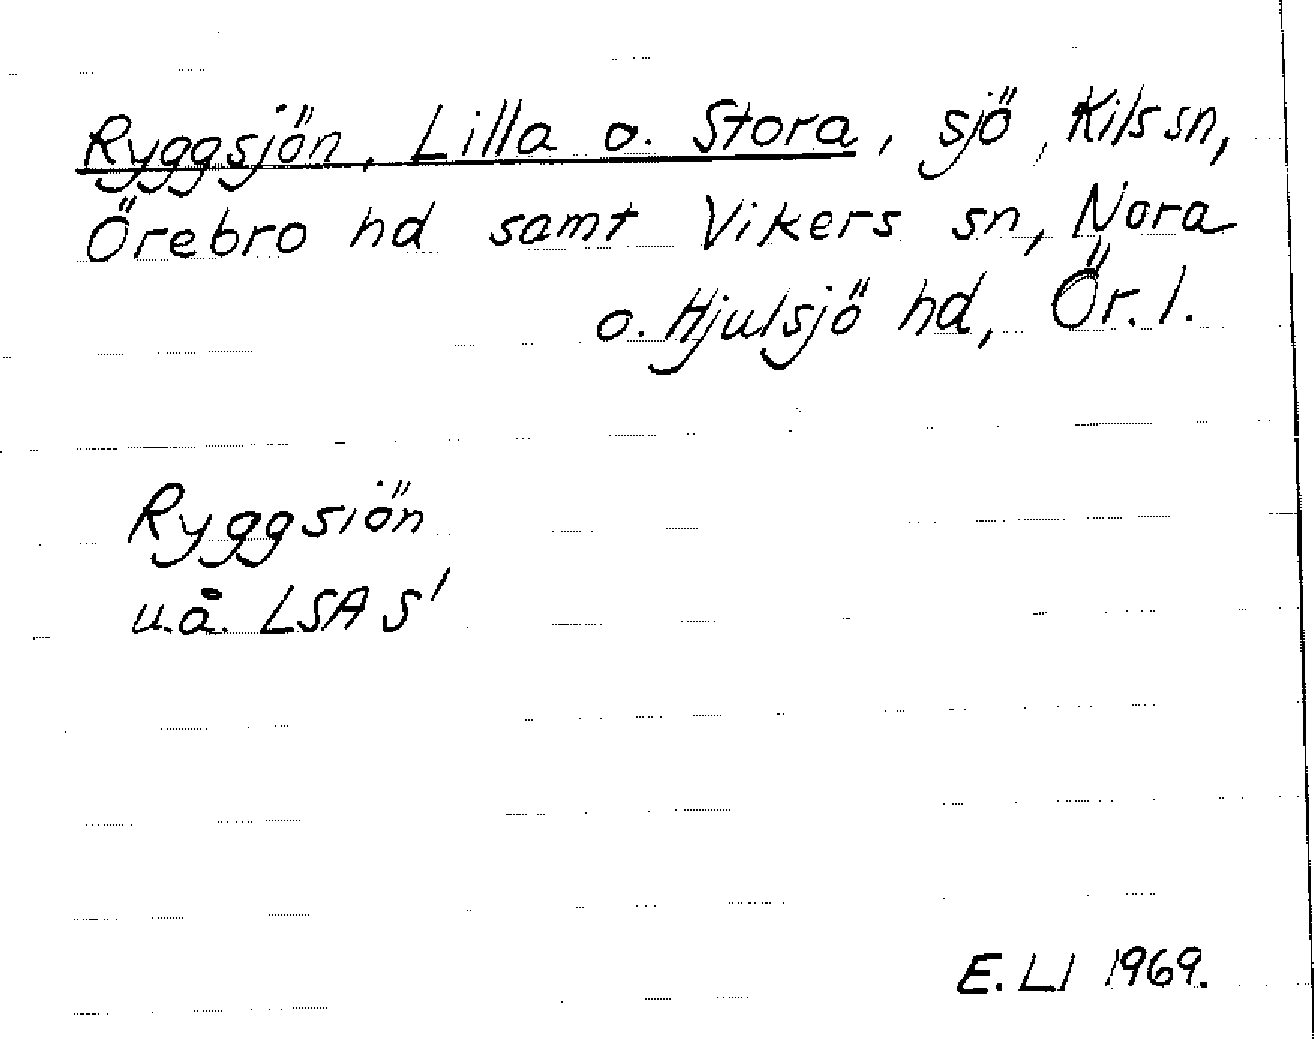 Ryggsjön, Lilla o. Stora, sjö, Kils sn,
Örebro hd samt Vikers sn, Nora
o. Hjulsjö hd, Ör. l.
Ryggsiön
u.å. LSA S1
E. Ll 1969.